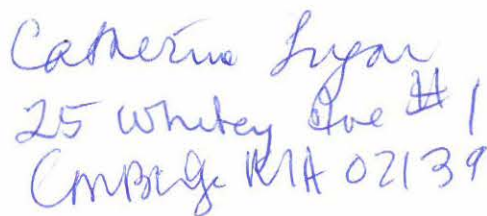 Catherine Lugar
25 Whitney Ave #1
Cambridge MA 02139